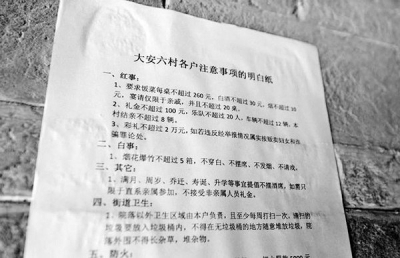 大安六村各户注意事项的明白纸
一、红事：
1、要求饭菜每桌不超过 260 元，白酒不超过 30 元，烟不超过 10
元，宴请仅限于亲戚，并且不超过 20 桌。
2、礼金不超过 100 元，乐队不超过 20 人，车辆不超过 12 辆，本
村纺亲不超过 8 辆。
3、彩礼不超过 2 万元，如若违反经举报情况属实按贩卖妇女和诈
骗罪论处。
二、白事：
1、烟花爆竹不超过 5 箱，不穿白、不摆席、不发烟、不请戏。
三、其它：
1、满月、周岁、乔迁、寿诞、升学等事宜提倡不摆酒席，如需只
限于直系亲属参加，不接受非亲属人员礼金。
四、街道卫生：
1、院落以外卫生区域由本户负责，且至少每周打扫一次，清扫的
垃圾要放入垃圾桶内，不得在无垃圾桶的地方随意堆放垃圾，院
落外围不得长杂草，堆杂物。
五、防火：
5000 元